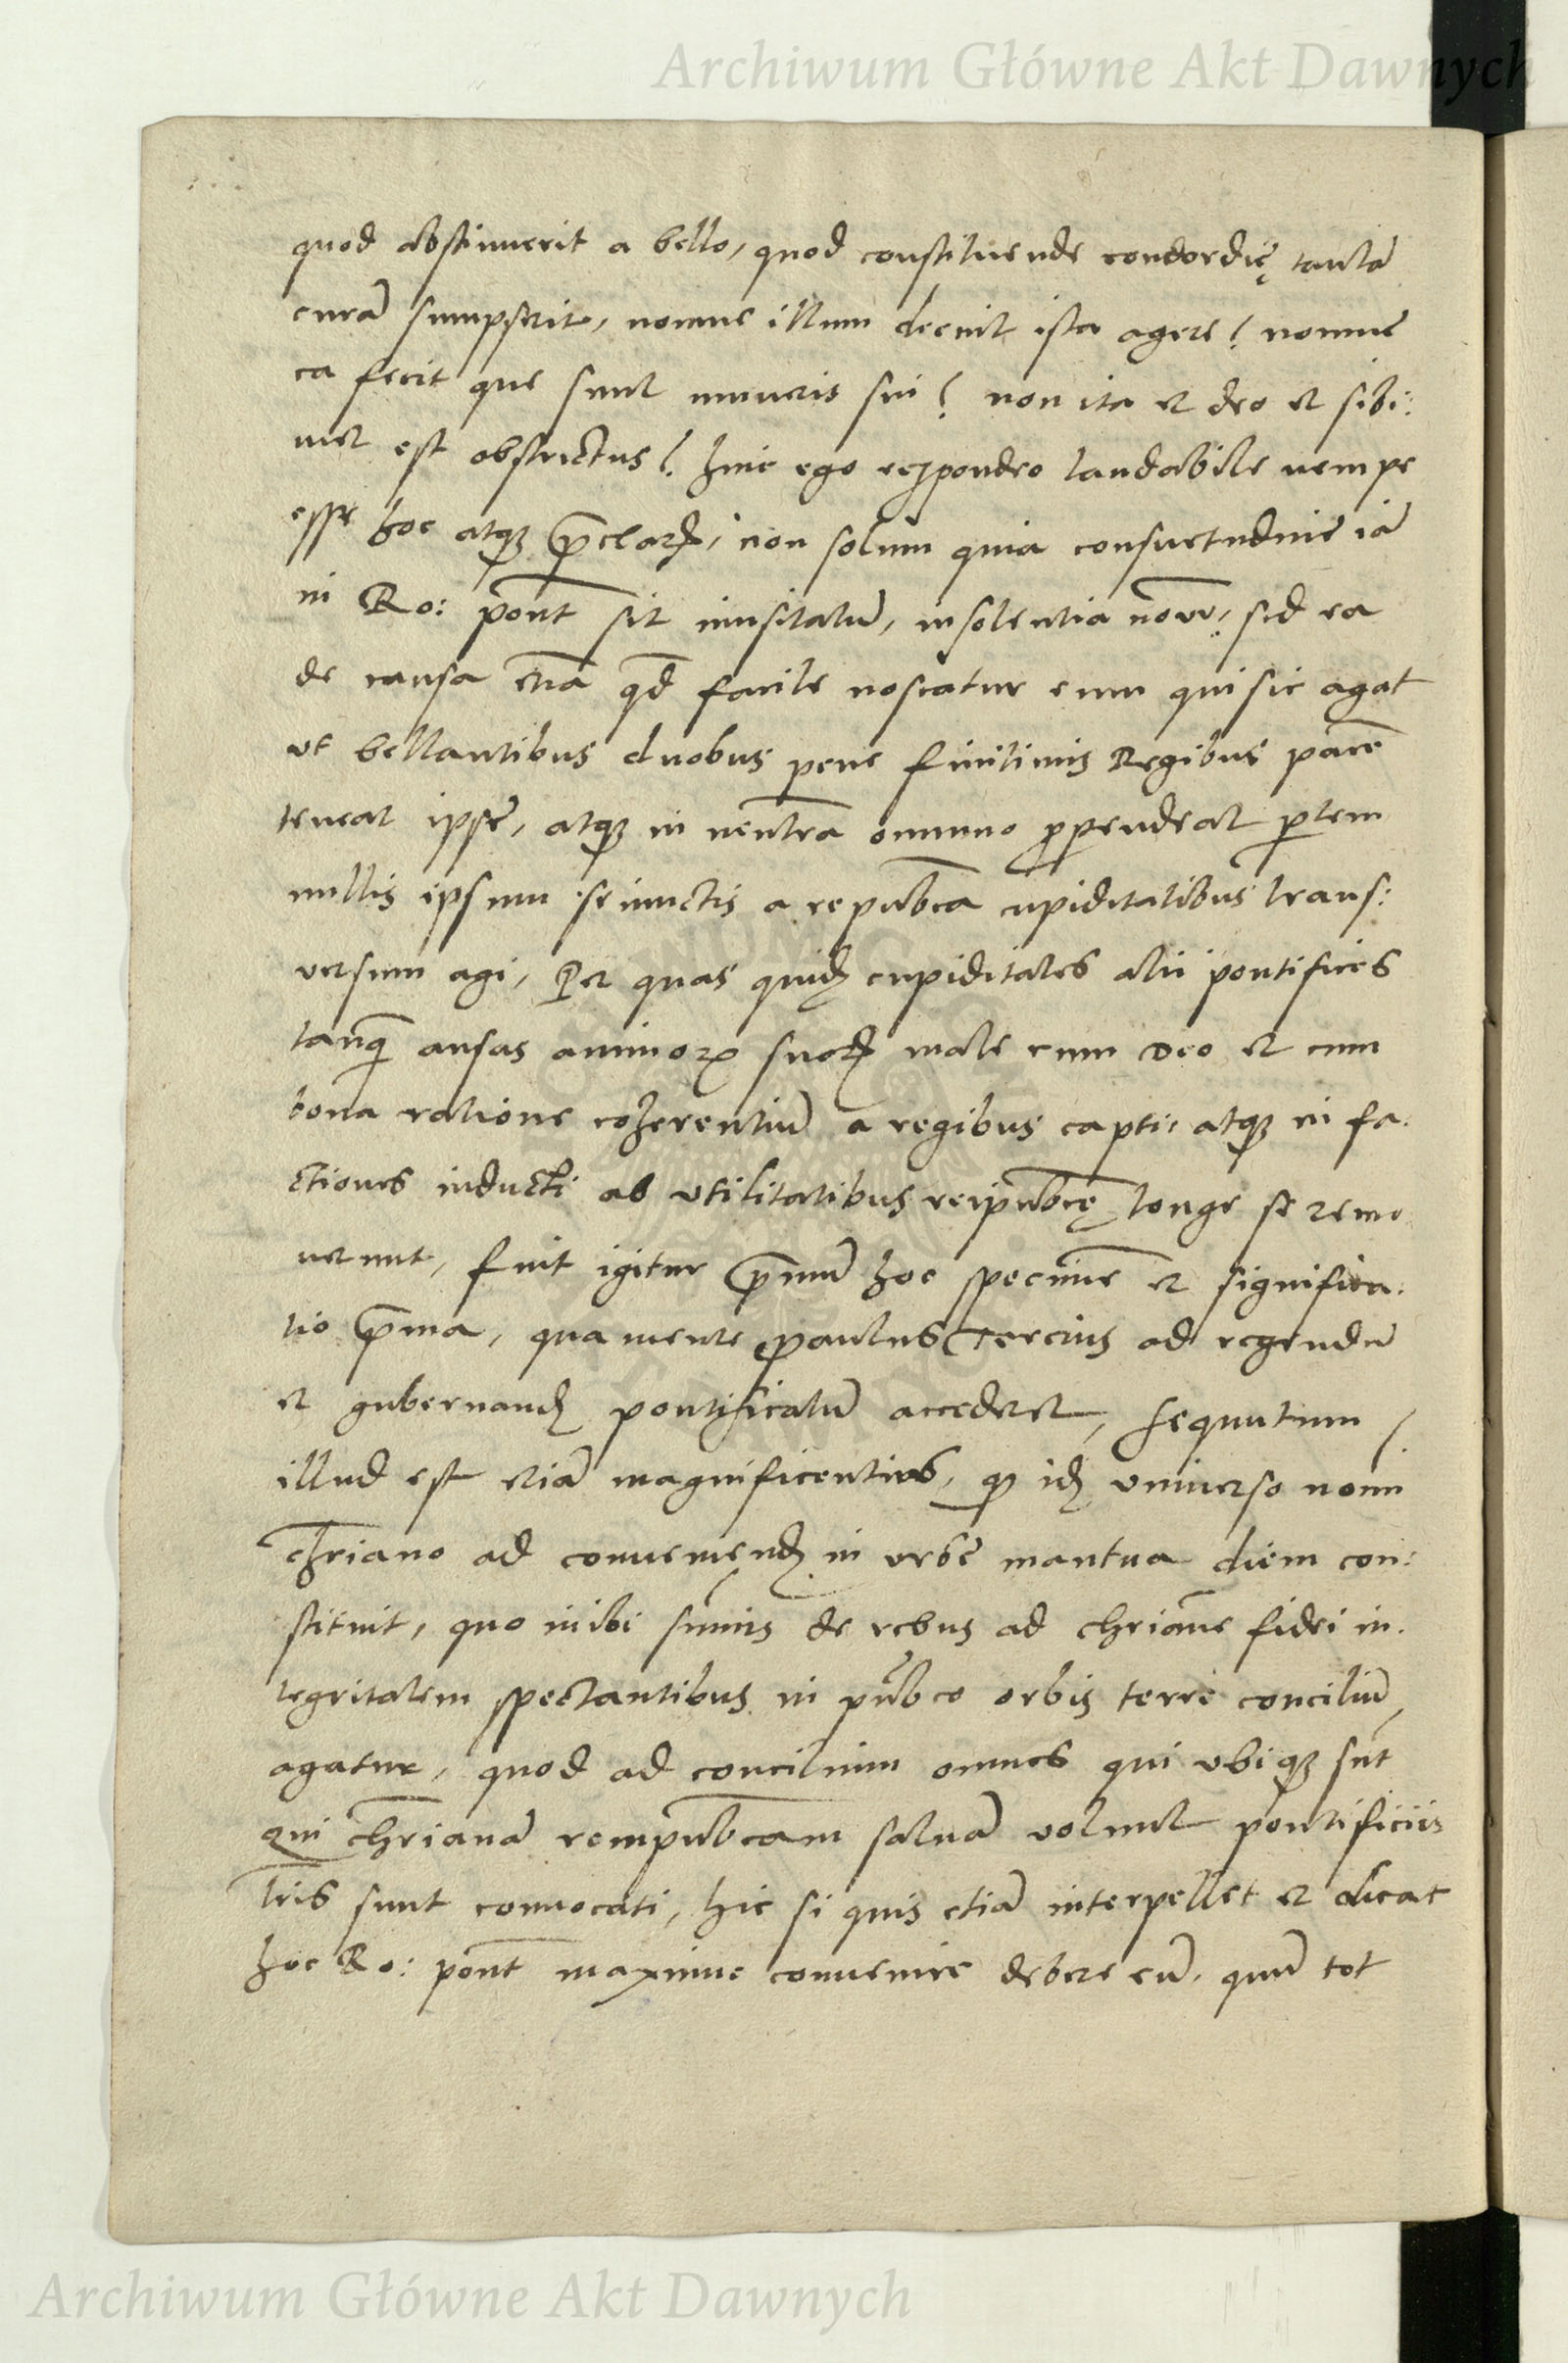 Archiwum Główne Akt Dawnych
quod abstinuerit a bello, quod constituende concordię tantā
curā sumpserit, nonne illum decuit ista agere? nonne
ea fecit que sunt muneris sui? non ita et deo et sibi:
met est obstrictus? huic ego respondeo laudabile nempe
esse hoc atqꝫ p̄clarꝫ, non solum quia consuetudinē iā
in Ro: pont̄ sit inusitatū, insolentia sed ea
de causa etiā qd̄ facile noscatur eum qui sic agat
ut bellantibus duobus pene finitimis Regibus pacē
teneat ipse, atqꝫ in neutrā omnino ꝓpendeat ꝑtem
nullis ipsum seiunctis a repub̄ca cupiditatibus trans:
uersum agi, Per quas quidꝫ cupiditates alii pontifices
tanq̄ ansas animoꝝ suoꝝ male cum Deo et cum
bona ratione coherentiū a regibus capti, atqꝫ in fa.
ctiones inducti ab utilitatibus reipub̄cę longe se remo
uerunt, fuit igitur p̄mū hoc specimē et significa.
tio p̄ma, qua mente paulus tercius ad regendū
et gubernandꝫ pontificatū accederet, sequutum
illud est etiā magnificentius, qꝫ idꝫ uniuerso nomi
chr̄iano ad conueniendꝫ in urbē mantua diem con:
stituit, quo inibi sum̄is de rebus ad chr̄iane fidei in.
tegritatem spectantibus in pub̄co orbis terre conciliū
agatur, quod ad concilium omnes qui ubiqꝫ sūt
qui chr̄ianā rempub̄cam saluā uolunt pontificiis
lr̄is sunt conuocati, hic si quis etiā interpellet et dicat
hoc Ro: pont̄ maxime conuenire debere cū, quū tot
Archiwum Główne Akt Dawnych